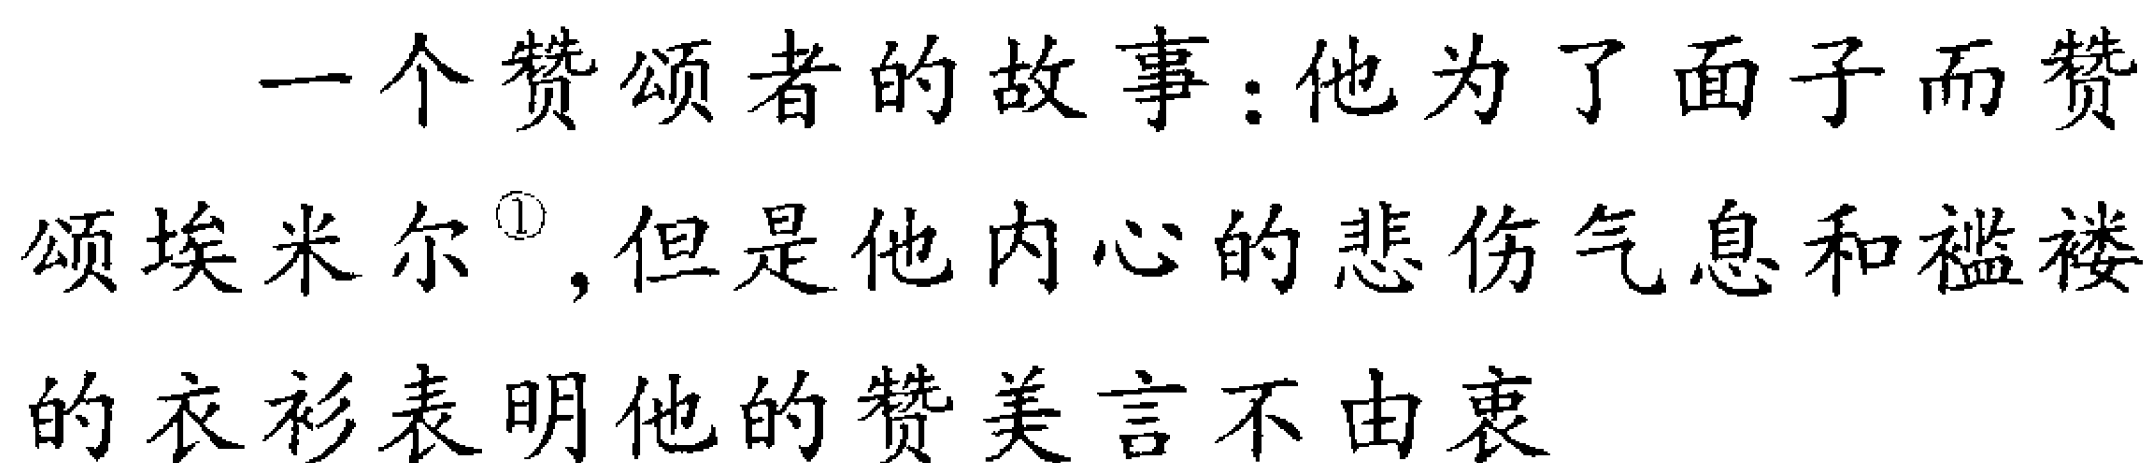 一个赞颂者的故事:他为了面子而赞
颂埃米尔①,但是他内心的悲伤气息和褴褛
的衣衫表明他的赞美言不由衷